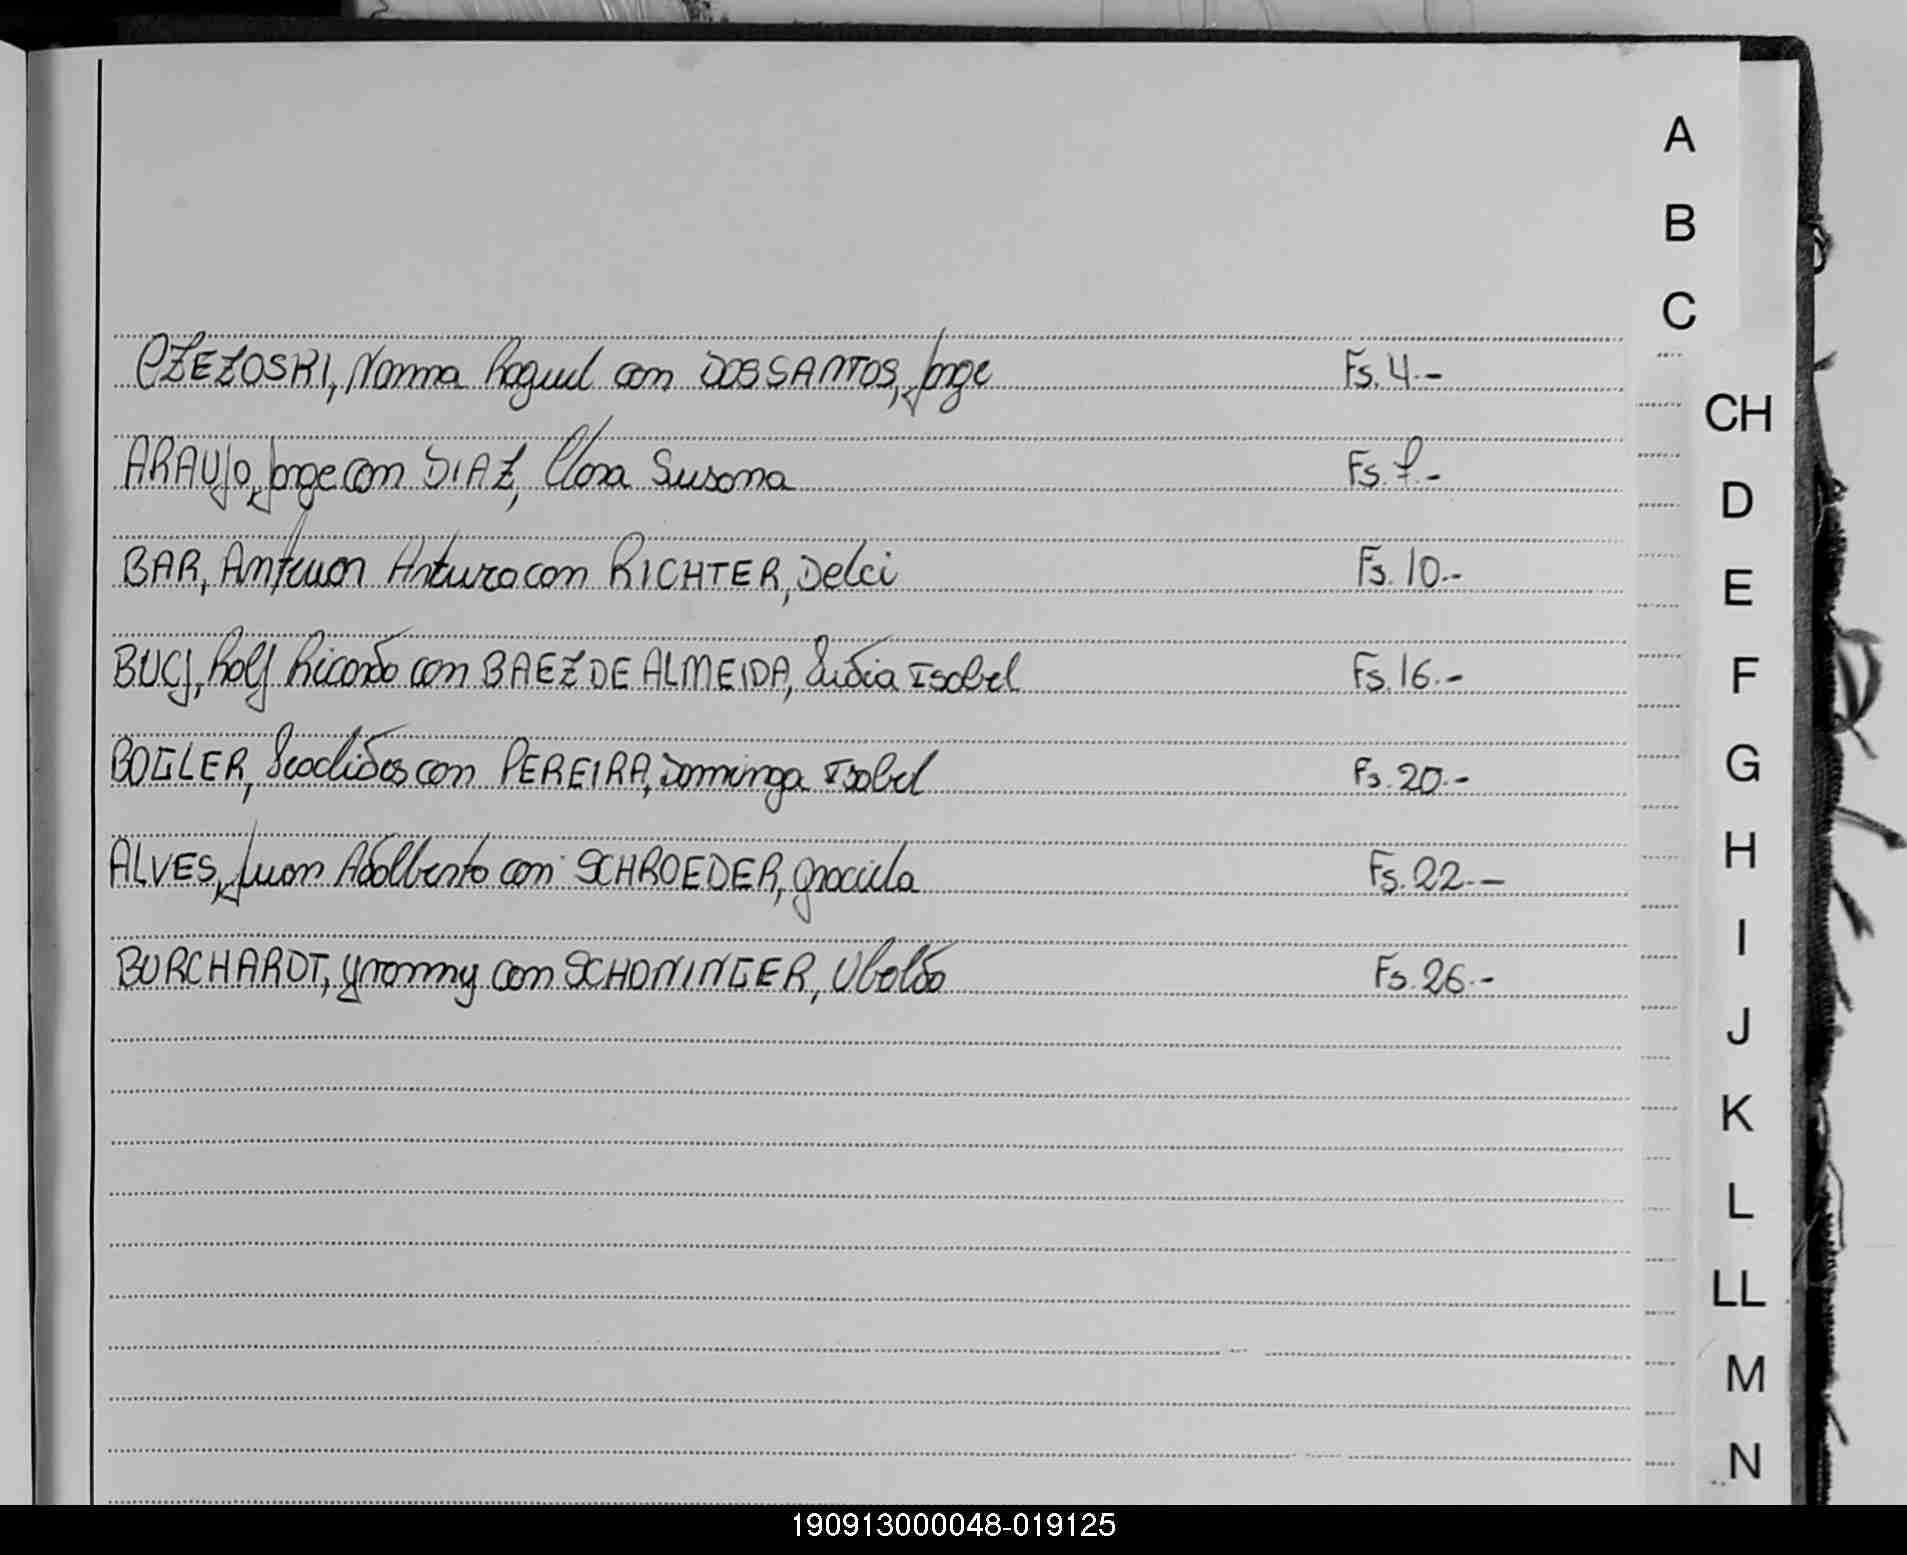 A
B
C
CZEZOSKI, Norma Raquel con DOS SANTOS, Jorge Fs. 4.-
CH
ARAUJO, Jorge con DIAZ, Clara Susana Fs. 7.-
D
BAR, Antenor Arturo con RICHTER, Delci Fs. 10.-
E
BUCJ, Rolf Ricardo con BAEZ DE ALMEIDA, Lidia Isabel Fs. 16.-
F
BOGLER, con PEREIRA, Dominga Isabel Fs. 20.-
G
ALVES, Juan Adalberto con SCHROEDER, Graciela Fs. 22.-
H
I
BURCHARDT, con SCHONINGER, Ubaldo Fs. 26.-
J
K
L
LL
M
N
190913000048-019125